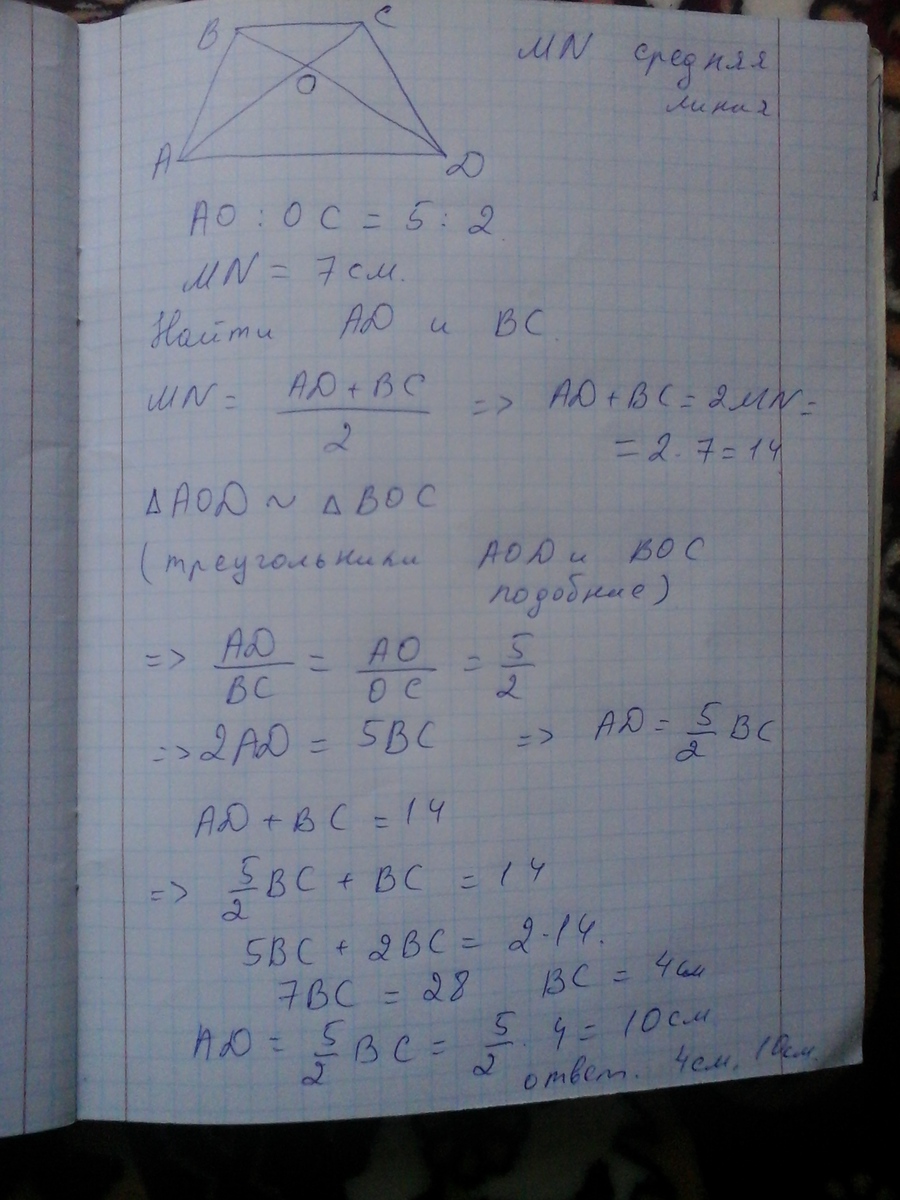 B C
O
A D
MN средняя
линия
AO : OC = 5 : 2.
MN = 7 см.
Найти AD и BC.
MN = (AD + BC)/2 => AD + BC = 2MN =
= 2 · 7 = 14
△AOD ~ △BOC
(треугольники AOD и BOC
подобные)
=> AD/BC = AO/OC = 5/2
=> 2AD = 5BC => AD = 5/2 BC
AD + BC = 14
=> 5/2 BC + BC = 14
5BC + 2BC = 2 · 14.
7BC = 28 BC = 4 см
AD = 5/2 BC = 5/2 · 4 = 10 см
ответ. 4 см, 10 см.